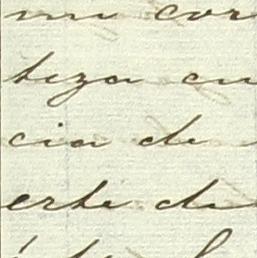 mi cor
teza en
cia de
erte de